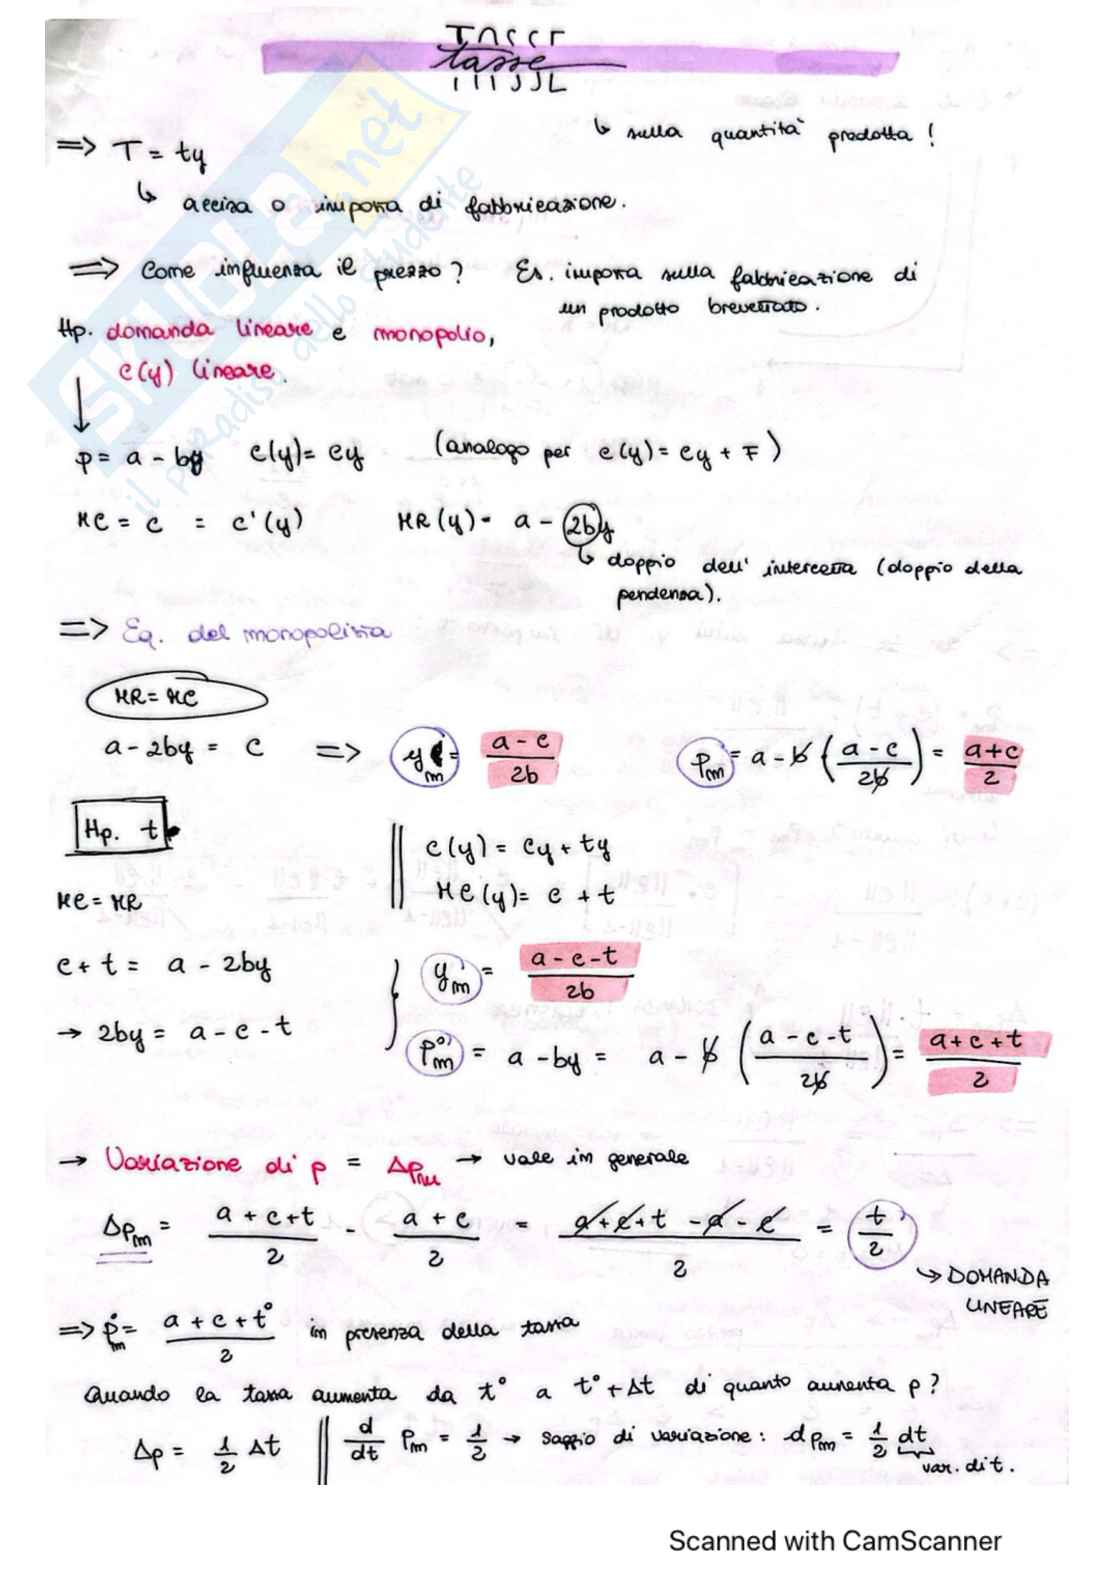 tasse
↳ sulla quantità prodotta!
=> T = ty
↳ accisa o imposta di fabbricazione.
=> Come influenza il prezzo? Es. imposta sulla fabbricazione di un prodotto brevettato.
Hp. domanda lineare e monopolio,
c(y) lineare.
↓
p = a - by c(y) = cy (analogo per c(y) = cy + F)
MC = c = c'(y) MR(y) = a - 2by
↳ doppio dell'intercetta (doppio della pendenza).
=> Eq. del monopolista
MR = MC
a - 2by = c => ym = (a - c)/2b pm = a - b((a - c)/2b) = (a + c)/2
Hp. t
c(y) = cy + ty
MC(y) = c + t
MC = MR
c + t = a - 2by
→ 2by = a - c - t
y'm = (a - c - t)/2b
p°m = a - by = a - b((a - c - t)/2b) = (a + c + t)/2
→ Variazione di p = Δpm → vale in generale
Δpm = (a + c + t)/2 - (a + c)/2 = (a + c + t - a - c)/2 = t/2
↳ DOMANDA LINEARE
=> p°m = (a + c + t°)/2 in presenza della tassa
Quando la tassa aumenta da t° a t° + Δt di quanto aumenta p?
Δp = 1/2 Δt || d/dt pm = 1/2 → saggio di variazione: dpm = 1/2 dt
var. di t.
SKUOLA.net
il paradiso dello studente
Scanned with CamScanner